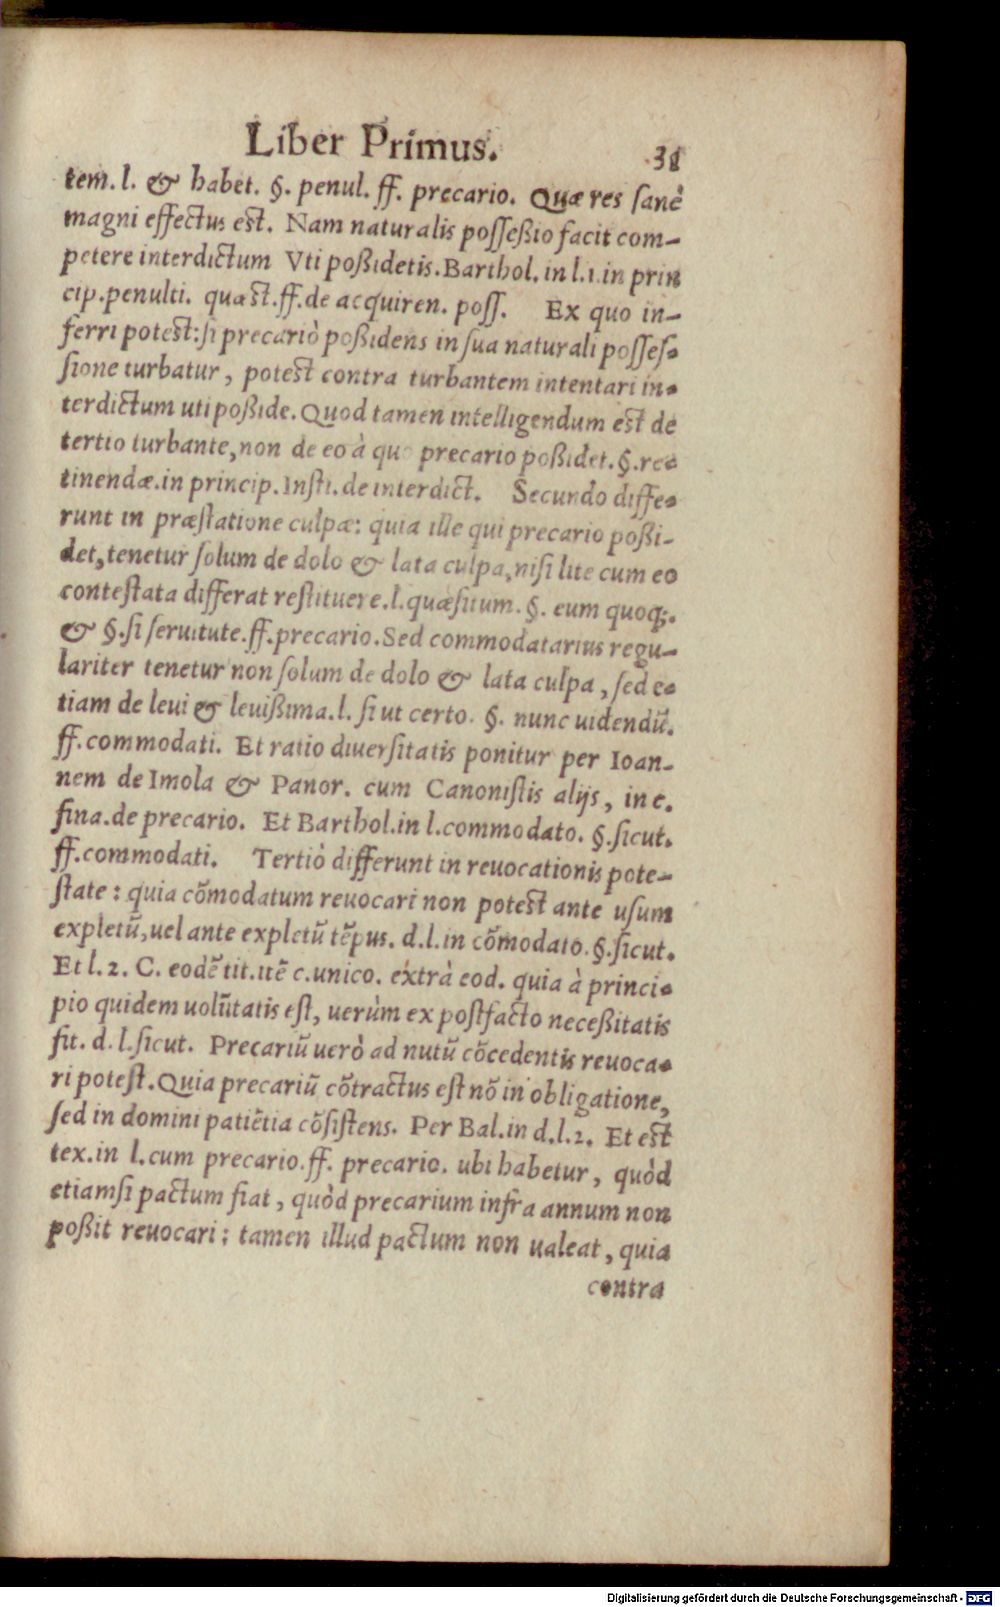 Liber Primus. 31
tem. l. & habet. §. penul. ff. precario. Quæ res sanè
magni effectus est. Nam naturalis possessio facit com-
petere interdictum Vti possidetis. Barthol. in l.1. in prin
cip. penulti. quæst. ff. de acquiren. poss. Ex quo in-
ferri potest: si precariò possidens in sua naturali posses-
sione turbatur, potest contra turbantem intentari in-
terdictum uti posside. Quod tamen intelligendum est de
tertio turbante, non de eo à quo precario possidet. §. re-
tinendæ. in princip. Insti. de interdict. Secundo diffe-
runt in præstatione culpæ: quia ille qui precario possi-
det, tenetur solum de dolo & lata culpa, nisi lite cum eo
contestata differat restituere. l. quæsitum. §. eum quoq;.
& §. si seruitute. ff. precario. Sed commodatarius regu-
lariter tenetur non solum de dolo & lata culpa, sed e-
tiam de leui & leuissima. l. si ut certo. §. nunc uidendũ.
ff. commodati. Et ratio diuersitatis ponitur per Ioan-
nem de Imola & Panor. cum Canonistis alijs, in c.
fina. de precario. Et Barthol. in l. commodato. §. sicut.
ff. commodati. Tertiò differunt in reuocationis pote-
state: quia cõmodatum reuocari non potest ante usum
expletũ, uel ante expletũ tẽpus. d. l. in cõmodato. §. sicut.
Et l. 2. C. eodẽ tit. itẽ c. unico. extrà eod. quia à princi-
pio quidem uolũtatis est, uerùm ex postfacto necessitatis
fit. d. l. sicut. Precariũ uerò ad nutũ cõcedentis reuoca-
ri potest. Quia precariũ cõtractus est nõ in obligatione,
sed in domini patiẽtia cõsistens. Per Bal. in d. l. 2. Et est
tex. in l. cum precario. ff. precario. ubi habetur, quòd
etiamsi pactum fiat, quòd precarium infra annum non
possit reuocari; tamen illud pactum non ualeat, quia
contra
Digitalisierung gefördert durch die Deutsche Forschungsgemeinschaft - DFG